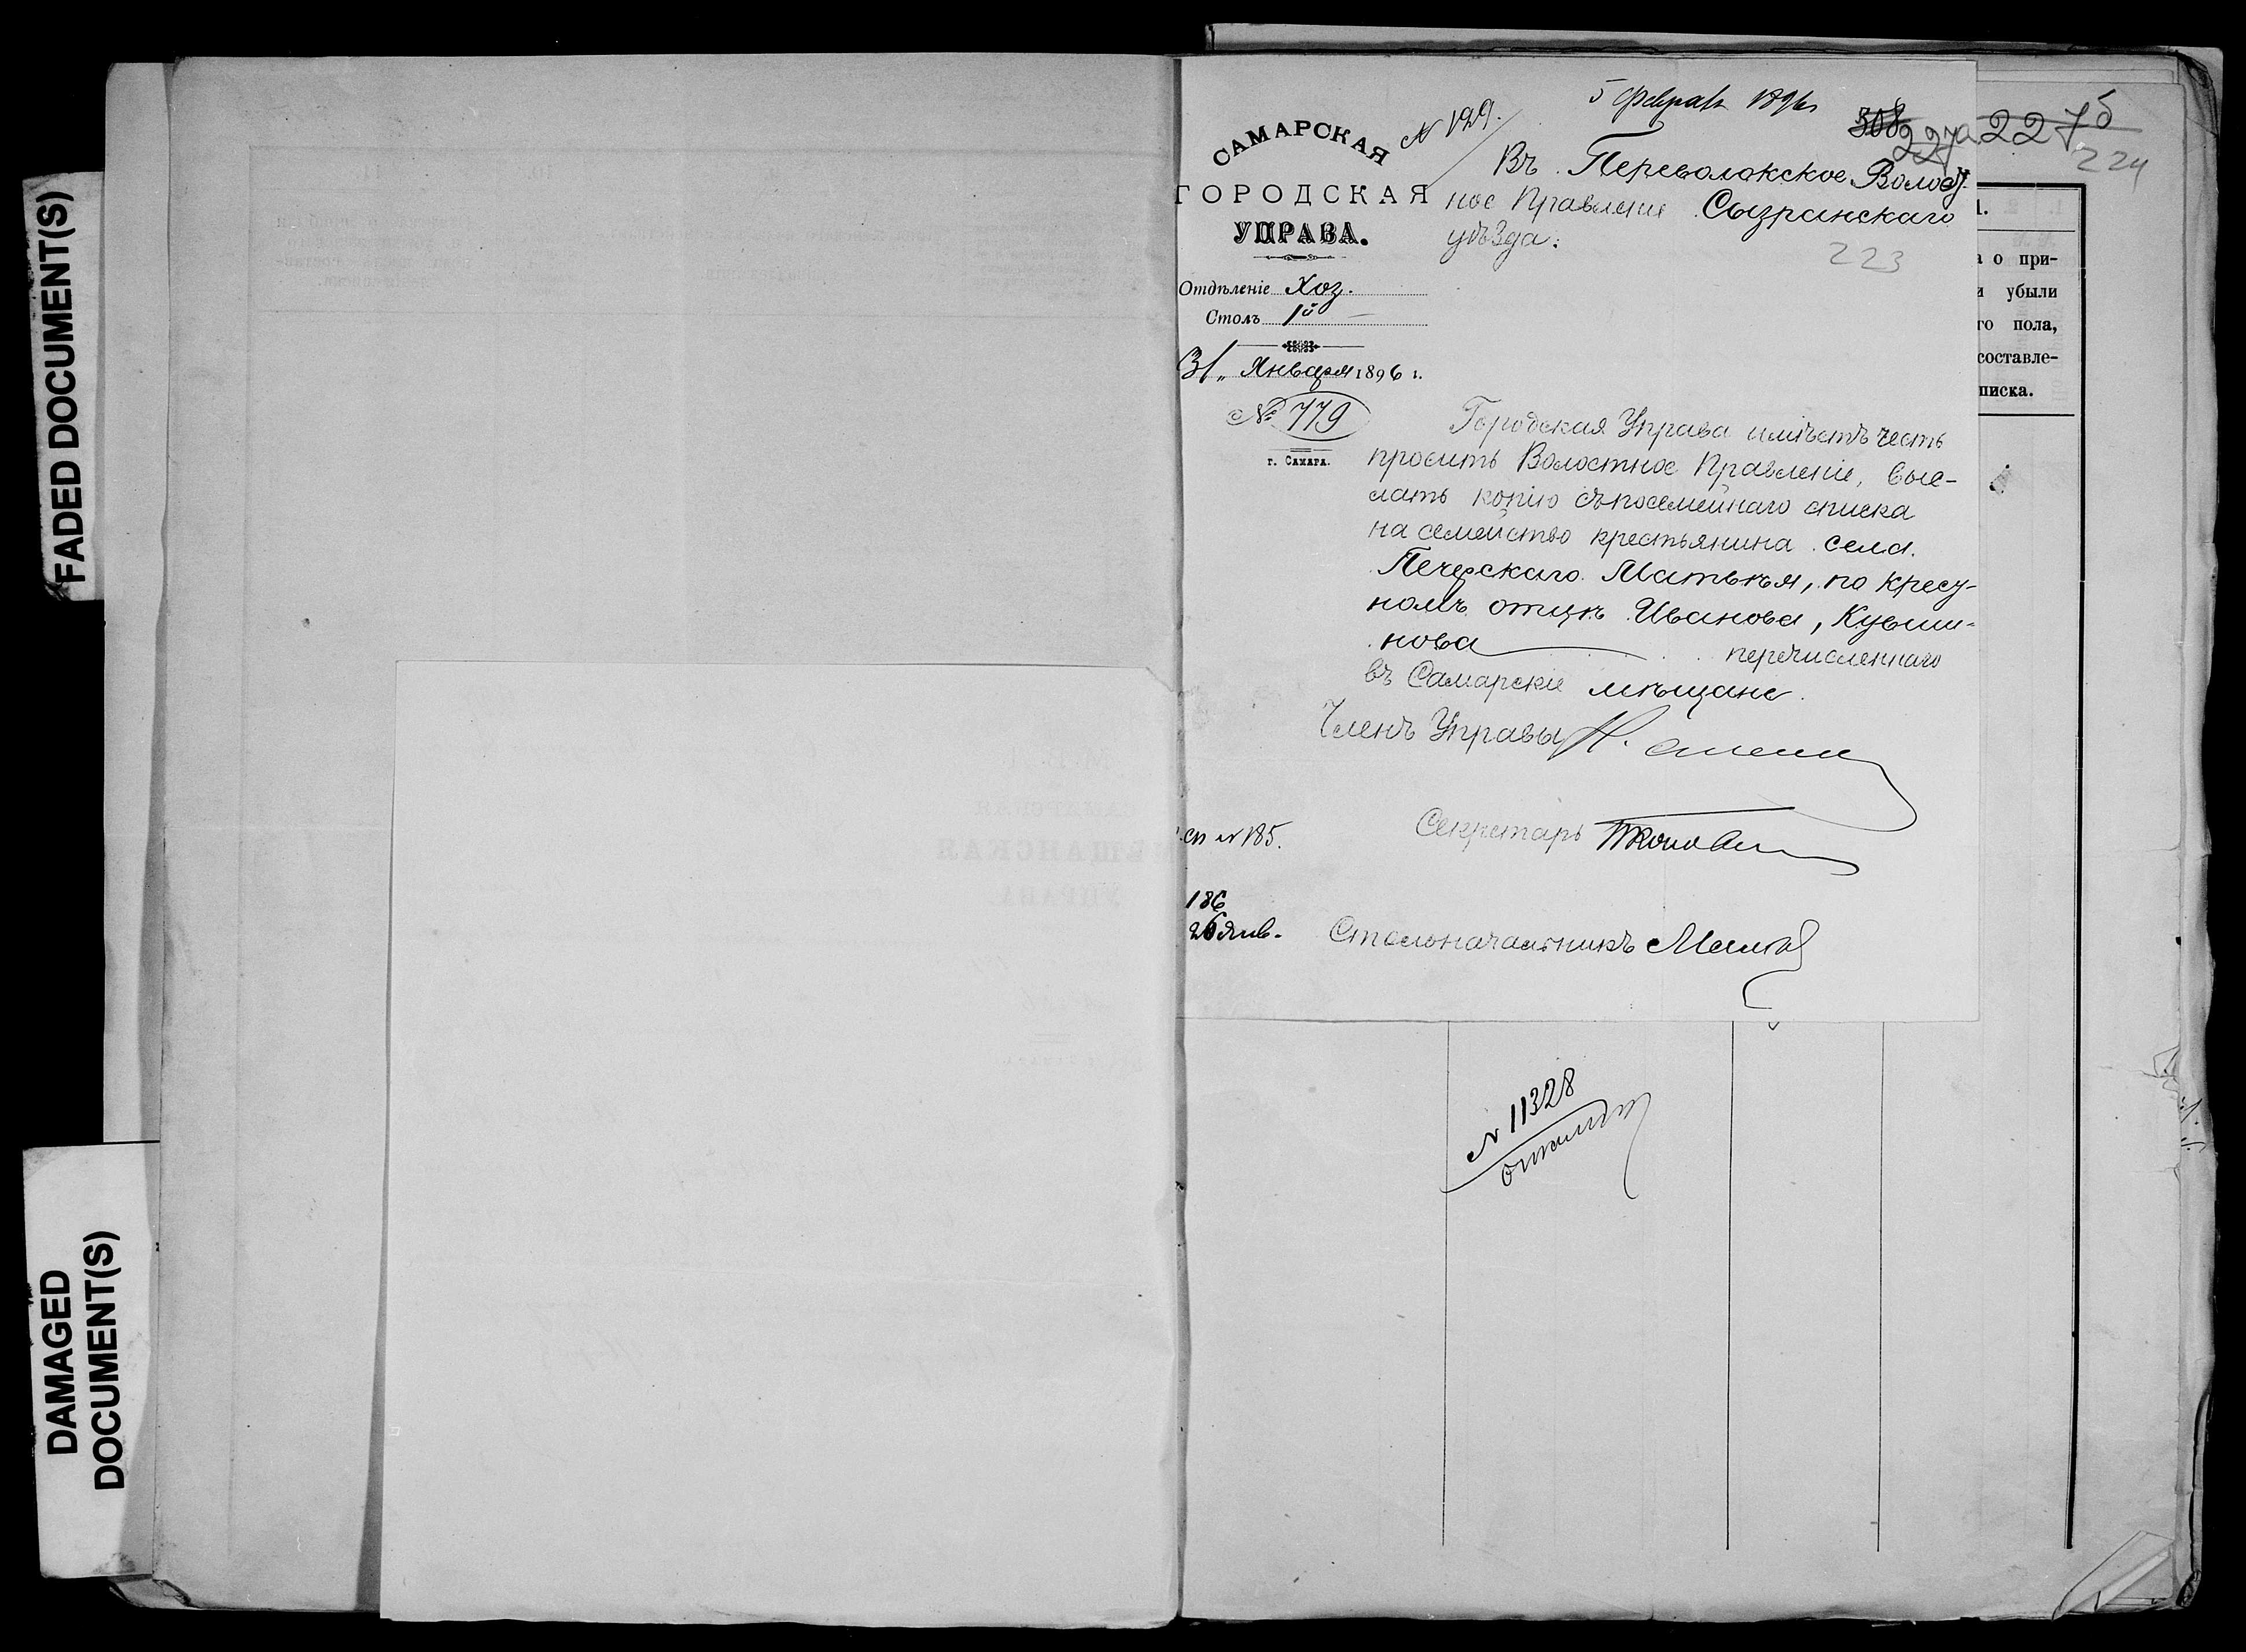 FADED DOCUMENT(S)
DAMAGED
DOCUMENT(S)
5 февраля 1896 г
№ 129.
308
227а
227б
224
САМАРСКАЯ
ГОРОДСКАЯ
УПРАВА.
Отдѣленіе Хоз.
Столъ 1й
31 „ Января 1896 г.
№ 779
г. САМАРА.
Въ Переволокское Волост-
ное Правленіе Сызранскаго
уѣзда.
223
Городская Управа имѣетъ честь
просить Волостное Правленіе, выс-
лать копію съ посемейнаго списка
на семейство крестьянина села
Печерскаго Матвѣя, по крест-
номъ отцѣ Иванова, Кувши-
нова перечисленнаго
въ Самарскіе мѣщане.
Членъ Управы
Секретарь
Столоначальникъ
сп № 185.
186
26 янв.
1.
а о при-
и убыли
го пола,
составле-
писка.
№ 11328